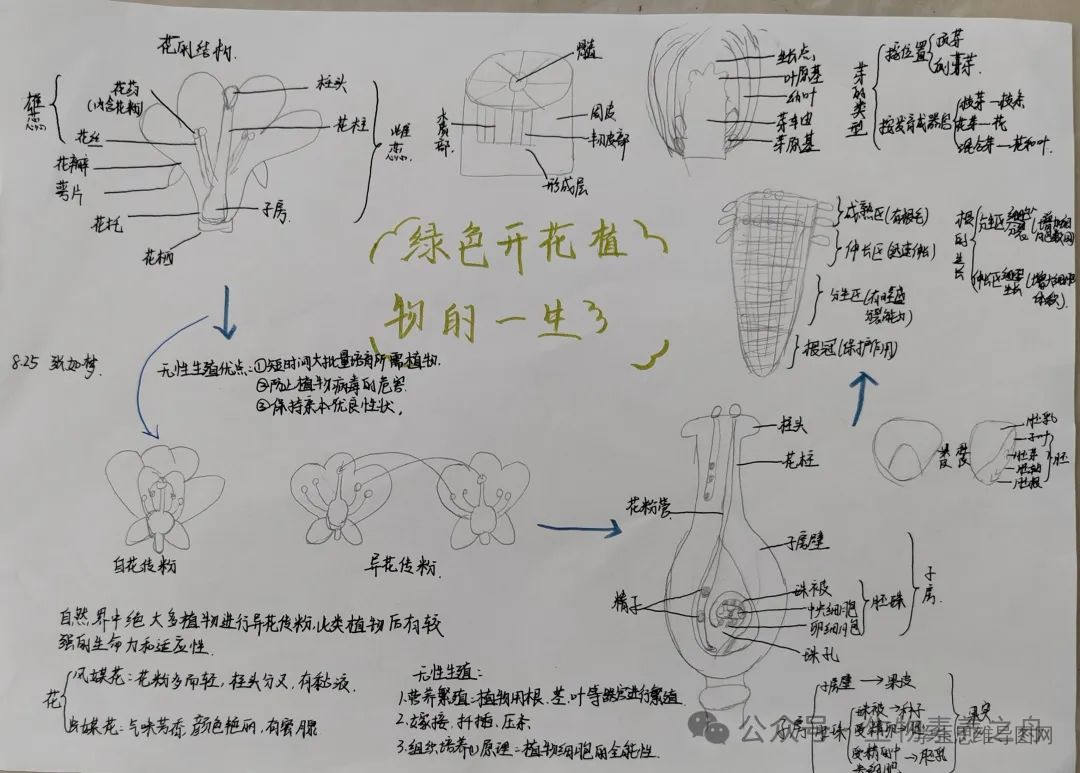 花的结构
雄蕊
花药
(内含花粉)
花丝
花瓣
萼片
花托
花柄
柱头
花柱
子房
雌蕊
髓
木质部
周皮
韧皮部
形成层
生长点
叶原基
幼叶
芽轴
芽原基
芽的类型
按位置
顶芽
侧芽
按发育成器官
枝芽—枝条
花芽—花
混合芽—花和叶.
绿色开花植
物的一生3
成熟区(有根毛)
伸长区(迅速伸长)
分生区(有
分裂能力)
根冠(保护作用)
根的生长
分生区细胞分裂(增加细胞数目)
伸长区细胞生长(增大细胞体积)
8.25
无性生殖优点:①短时间大批量培育所需植物.
②防止植物病毒的危害
③保持亲本优良性状.
自花传粉
异花传粉.
柱头
花柱
花粉管
子房壁
精子
珠被
中央细胞
卵细胞
珠孔
胚珠
子房
胚乳
子叶
胚芽
胚轴
胚根
胚
自然界中绝大多植物进行异花传粉,此类植物后代较
强的生命力和适应性.
花
风媒花:花粉多而轻,柱头分叉,有黏液.
虫媒花:气味芳香,颜色艳丽,有蜜腺
无性生殖:
1.营养繁殖:植物用根、茎、叶等器官进行繁殖
2.嫁接、扦插、压条
3.组织培养①原理:植物细胞的全能性.
子房壁→果皮
珠被→种子
受精
受精的中
→胚乳
果实
公众号
思维导图网